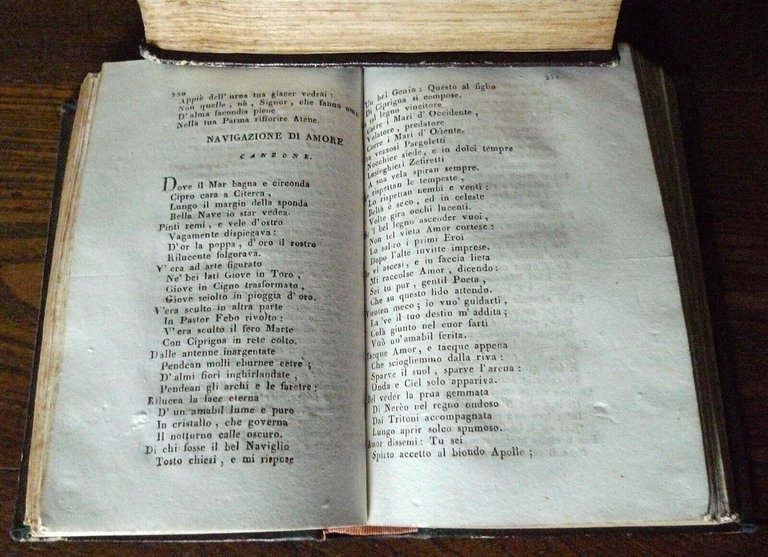 200
Appiè dell' urna tua giacer vedrai:
Non quelle, nò, Signor, che fanno onta,
D'alma facondia piene
Nella tua Parma rifiorire Atene.
NAVIGAZIONE DI AMORE
CANZONE.
Dove il Mar bagna e circonda
Cipro cara a Citerca,
Lungo il margin della sponda
Bella Nave io star vedea.
Pinti remi, e vele d'ostro
Vagamente dispiegava:
D'or la poppa, d'oro il rostro
Rilucente folgorava.
V'era ad arte figurato
Ne' bei lati Giove in Toro,
Giove in Cigno trasformato,
Giove sciolto in pioggia d'oro.
V'era sculto in altra parte
In Pastor Febo rivolto:
V'era sculto il fero Marte
Con Ciprigna in rete colto.
Dalle antenne inargentate
Pendean molli eburnee cetre;
D'almi fiori inghirlandate,
Pendean gli archi e le faretre:
Rilucea la face eterna
D'un amabil lume e puro
In cristallo, che governa
Il notturno calle oscuro.
Di chi fosse il bel Naviglio
Tosto chiesi, e mi rispose
Un bel Genio: Questo al figlio
Di Ciprigna si compose.
legno vincitore
Corre i Mari d' Occidente,
Volatore, predatore
Corre i Mari d' Oriente.
vezzosi Pargoletti
Nocchier siede, e in dolci tempre
Lusinghieri Zefiretti
A sua vela spiran sempre.
rispettan le tempeste,
Lo rispettan nembi e venti:
Beltà è seco, ed in celeste
Volte gira occhi lucenti.
bel legno ascender vuoi,
Non tel vieta Amor cortese:
Lo saliro i primi Eroi
Dopo l'alte invitte imprese.
vi ascesi, e in faccia lieta
Mi raccolse Amor, dicendo:
Sei tu pur, gentil Poeta,
Che su questo lido attendo.
meco; io vuo' guidarti,
La 've il tuo destin m'addita;
Colà giunto nel cuor farti
Vuò un'amabil ferita.
Tacque Amor, e tacque appena
Che sciogliemmo dalla riva:
Sparve il suol, sparve l'arena:
Onda e Ciel solo appariva.
veder la prua gemmata
Di Nerèo nel regno ondoso
Dai Tritoni accompagnata
Lungo aprir solco spumoso.
Amor dissemi: Tu sei
Spirto accetto al biondo Apollo;